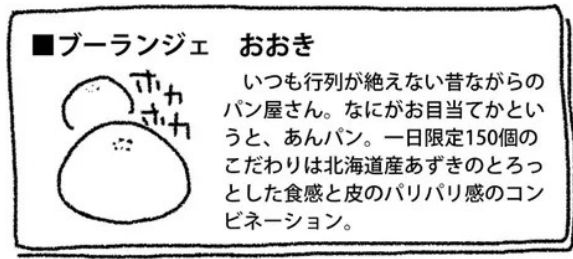 ■ブーランジェ　おおき
ホカ
ホカ
　いつも行列が絶えない昔ながらの
パン屋さん。なにがお目当てかとい
うと、あんパン。一日限定150個の
こだわりは北海道産あずきのとろっ
とした食感と皮のパリパリ感のコン
ビネーション。